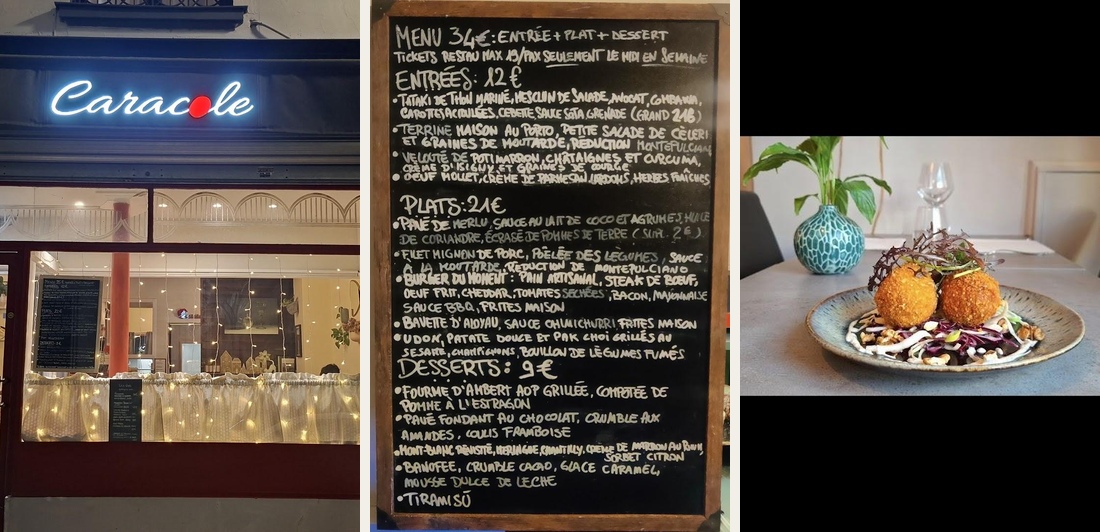 Caracole
MENU 34€: ENTRÉE + PLAT + DESSERT
TICKETS RESTAU MAX 19/PAX SEULEMENT LE MIDI EN SEMAINE
ENTRÉES: 12€
• TATAKI DE THON MARINÉ, MESCLUN DE SALADE, AVOCAT,
CAROTTES ACIDULÉES, CEBETTE, SAUCE SOJA, GRENADE (GRAND 21€)
• TERRINE MAISON AU PORTO, PETITE SALADE DE CÈLERI
ET GRAINES DE MOUTARDE, REDUCTION MONTEPULCIANO
• VELOUTÉ DE POTIMARRON, CHÂTAIGNES ET CURCUMA,
CRÈME D'ISIGNY ET GRAINES DE COURGE
• OEUF MOLLET, CRÈME DE PARMESAN, LARDONS, HERBES FRAÎCHES
PLATS: 21€
• PAVÉ DE MERLU, SAUCE AU LAIT DE COCO ET AGRUMES, HUILE
DE CORIANDRE, ÉCRASÉ DE POMMES DE TERRE (SUP. 2€)
• FILET MIGNON DE PORC, POÊLÉE DES LÉGUMES, SAUCE
À LA MOUTARDE, REDUCTION DE MONTEPULCIANO
• BURGER DU MOMENT: PAIN ARTISANAL, STEAK DE BŒUF,
OEUF FRIT, CHEDDAR, TOMATES SECHÉES, BACON, MAYONNAISE
SAUCE BBQ, FRITES MAISON
• BAVETTE D'ALOYAU, SAUCE CHIMICHURRI, FRITES MAISON
• UDON, PATATE DOUCE ET PAK CHOI GRILLÉS AU
SESAME, CHAMPIGNONS, BOUILLON DE LÈGUMES FUMÉS
DESSERTS: 9€
• FOURME D'AMBERT AOP GRILLÉE, COMPOTÉE DE
POMME À L'ESTRAGON
• PAVÉ FONDANT AU CHOCOLAT, CRUMBLE AUX
AMANDES, COULIS FRAMBOISE
• MONT-BLANC REVISITÉ, MERINGUE, CHANTILLY, CRÈME DE MARRON AU RHUM,
SORBET CITRON
• BANOFEE, CRUMBLE CACAO, GLACE CARAMEL,
MOUSSE DULCE DE LECHE
• TIRAMISÙ